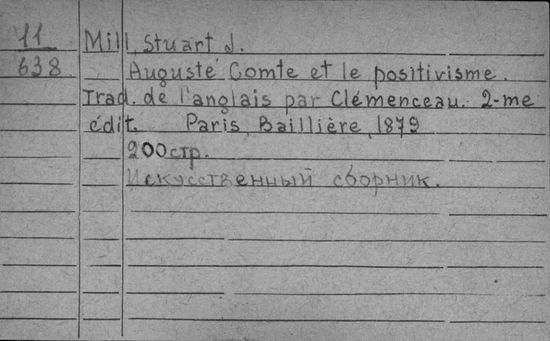 11 Mill, Stuart J.
638 Auguste Comte et le positivisme.
Trad. de l'anglais par Clémenceau. 2-me
édit. Paris, Baillière, 1879
200стр.
Искусственный сборник.